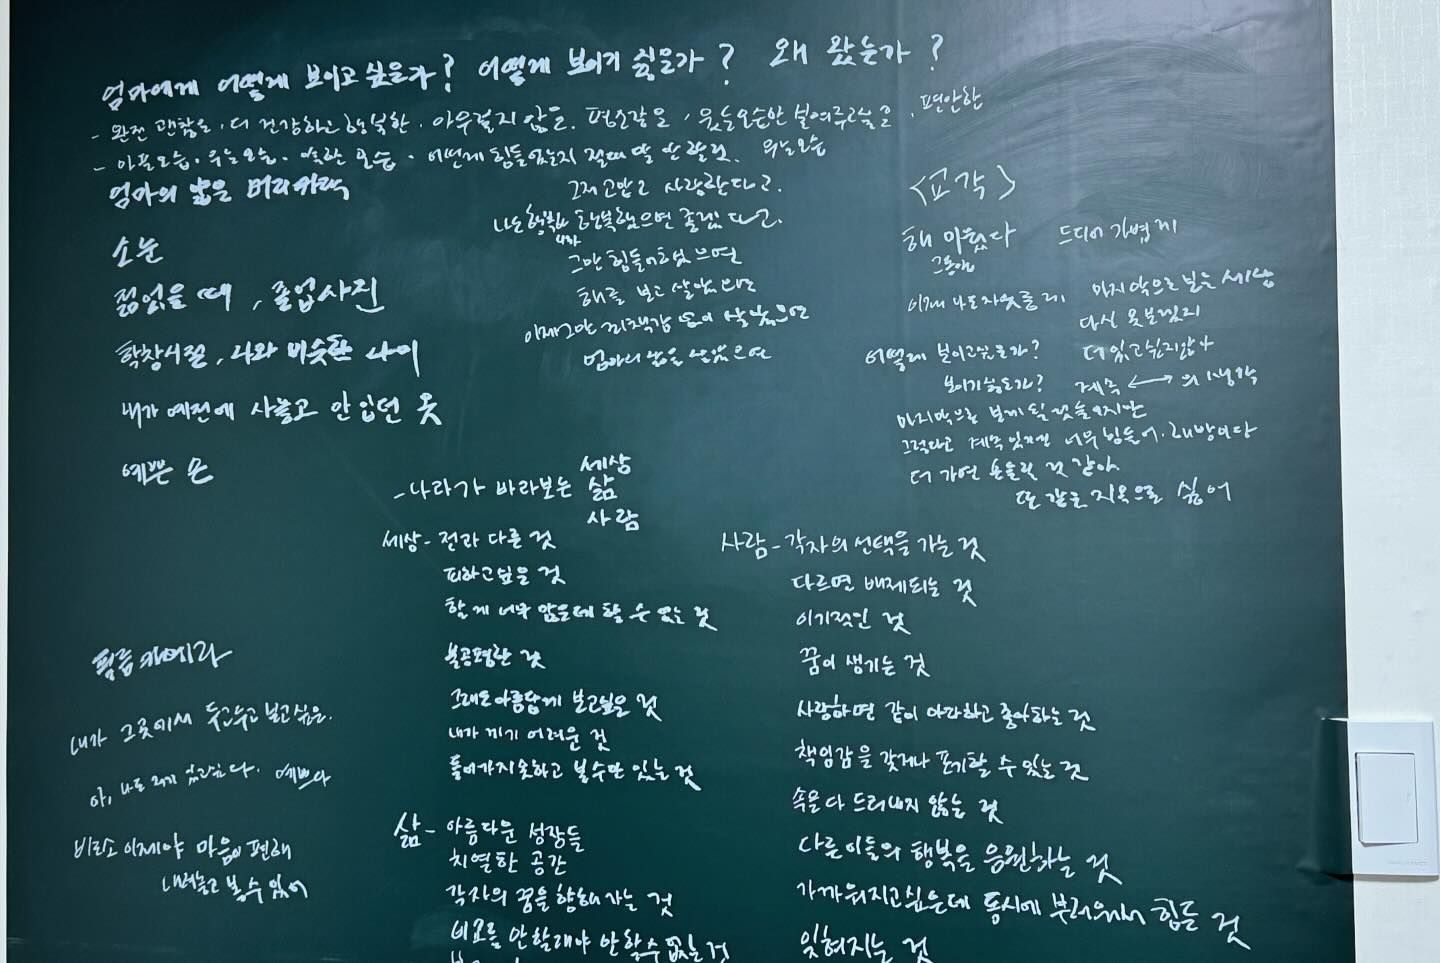 엄마에게 어떻게 보이고 싶을가? 어떻게 보이기 싫을가? 왜 왔는가?
- 완전 괜찮은, 더 건강하고 행복한. 아무렇지 않은. 평소같은, 웃는모습만 보여주고싶은, 편안한
- 아픈모습. 우는모습. 약한 모습. 어떤게 힘들었는지 절대 말 안 할것.
엄마의 많은 머리카락
소눈
젊었을 때, 졸업사진
학창시절, 나와 비슷한 나이
내가 예전에 사놓고 안 입던 옷
예쁜 손
그저 고맙고 사랑한다고.
나는 행복했으면 좋겠다고.
그만 힘들어했으면
해를 보고 살았으면
이제그만 죄책감 없이 살았으면
엄마의 삶을 살았으면
<교각>
해 이쁘다 드디어 가볍게
그동안
이제 나도 자유롭게 마지막으로 보는 세상
다신 못볼텐데
더 있고싶지않아
어떻게 보이고싶은가?
보이기싫은가? 계속 ←→ 의 생각
마지막으로 보게 될 것들이지만
그렇다고 계속 있기엔 너무 힘들어. 해방이다
더 가면 혼돈일 것 같아
또 같은 지옥으로 싫어
- 나라가 바라보는 세상
삶
사람
세상 - 전과 다른 것
피하고싶은 것
할 게 너무 많은데 할 수 없는 것
불공평한 것
그래도 아름답게 보고싶은 것
내가 끼기 어려운 것
들어가지못하고 볼수만 있는 것
삶 - 아름다운 성장들
치열한 공간
각자의 꿈을 향해 가는 것
비교를 안할래야 안할수 없는 것
사람 - 각자의 선택을 가는 것
다르면 배제되는 것
이기적인 것
꿈이 생기는 것
사랑하면 같이 아파하고 좋아하는 것
책임감을 갖거나 포기할 수 있는 것
속을 다 드러내지 않는 것
다른이들의 행복을 응원하는 것
가까워지고싶은데 동시에 부러워서 힘든 것
잊혀지는 것
필름카메라
내가 그곳에서 두고두고 보고싶은.
아, 나도 저기 있었다. 예쁘다
비로소 이제야 마음이 편해
내려놓고 볼 수 있어